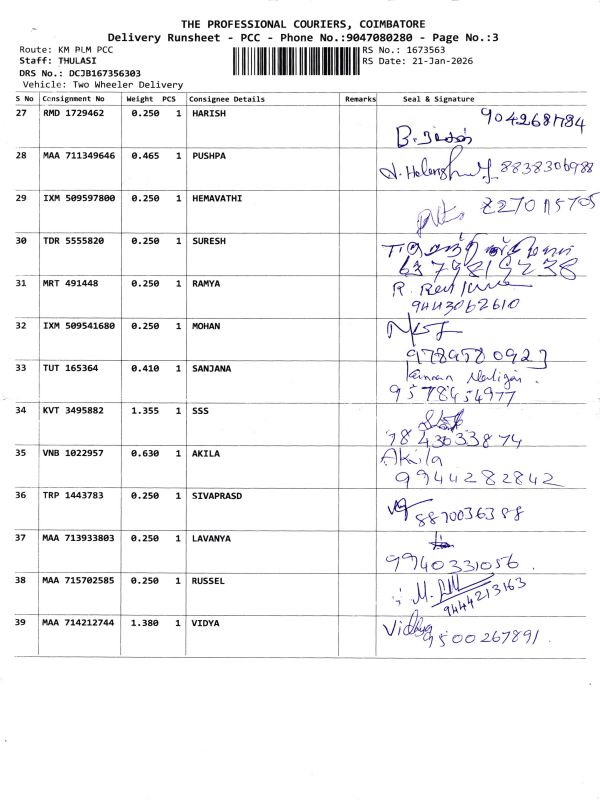 THE PROFESSIONAL COURIERS, COIMBATORE
Delivery Runsheet - PCC - Phone No.:9047080280 - Page No.:3
Route: KM PLM PCC RS No.: 1673563
Staff: THULASI RS Date: 21-Jan-2026
DRS No.: DCJB167356303
Vehicle: Two Wheeler Delivery
S No Consignment No Weight PCS Consignee Details Remarks Seal & Signature
27 RMD 1729462 0.250 1 HARISH
28 MAA 711349646 0.465 1 PUSHPA 8838306988
29 IXM 509597800 0.250 1 HEMAVATHI
30 TDR 5555820 0.250 1 SURESH
6379819238
31 MRT 491448 0.250 1 RAMYA R.
9443062610
32 IXM 509541680 0.250 1 MOHAN
9789580923
33 TUT 165364 0.410 1 SANJANA
9578454977
34 KVT 3495882 1.355 1 SSS
7843633874
35 VNB 1022957 0.630 1 AKILA Akila
9944282842
36 TRP 1443783 0.250 1 SIVAPRASD
8870036388
37 MAA 713933803 0.250 1 LAVANYA
9940331056.
38 MAA 715702585 0.250 1 RUSSEL M.
9444213163
39 MAA 714212744 1.380 1 VIDYA Vidhya
9500267891.